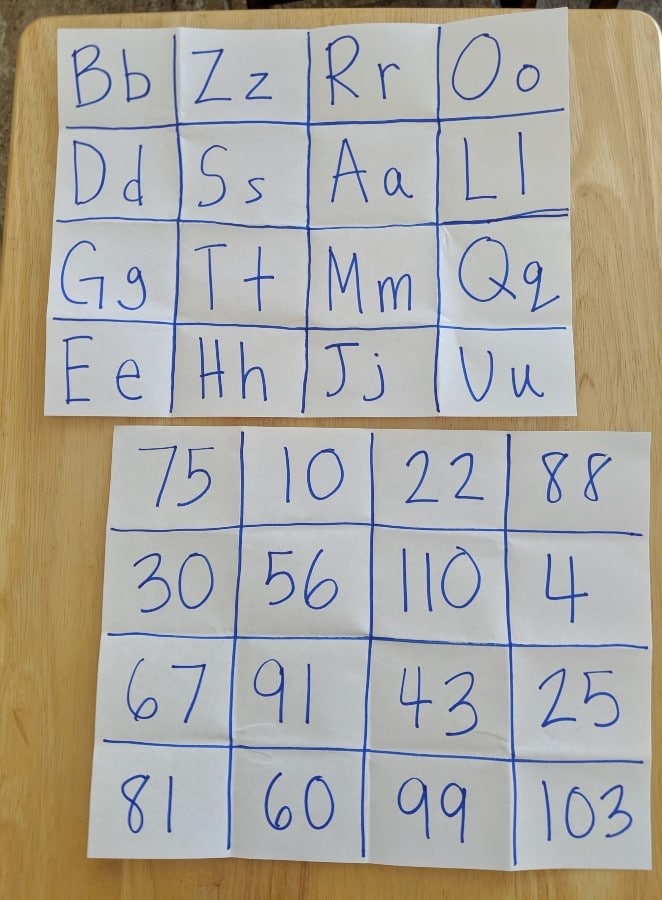 Bb Zz Rr Oo
Dd Ss Aa Ll
Gg Tt Mm Qq
Ee Hh Jj Uu
75 10 22 88
30 56 110 4
67 91 43 25
81 60 99 103